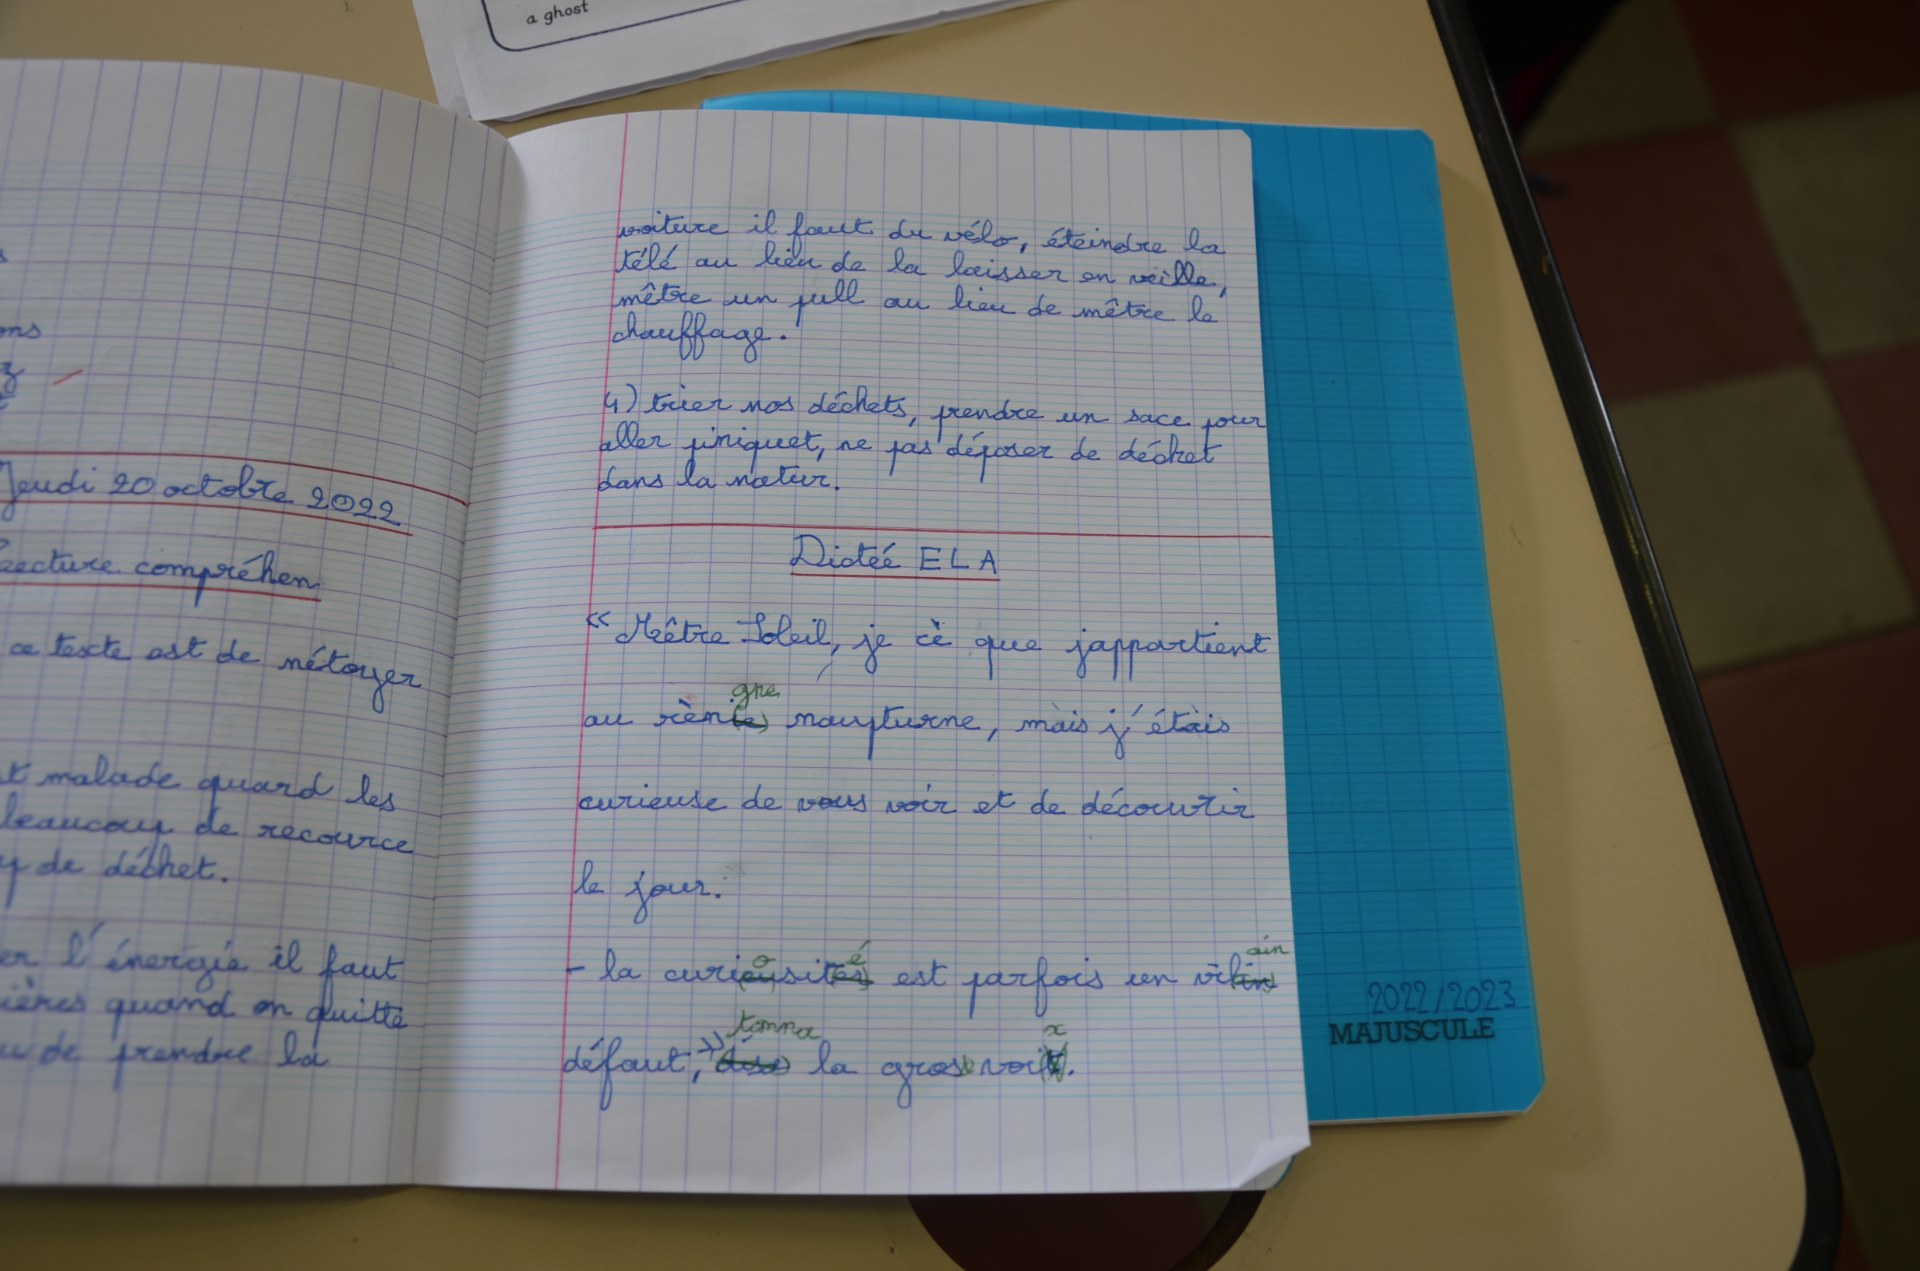 a ghost
ons
Jeudi 20 octobre 2022
Lecture compréhen
ce texte est de nétoyer
malade quand les
beaucoup de recource
de déchet.
er l'énergie il faut
ières quand on quitte
u de prendre la
voiture il faut du vélo, éteindre la
télé au lieu de la laisser en veille,
mêtre un pull au lieu de mêtre le
chauffage.
4) trier nos déchets, prendre un sace pour
aller piniquet, ne pas déposer de déchet
dans la natur.
Dicteé ELA
« Meêtre Soleil, je cè que j'appartient
gne
au rèn naupturne, mais j'étais
curieuse de vous voir et de découvrir
le jour.
o é ain
- la curieusités est parfois un vilins
tonna x
défaut, » la grose voit.
2022/2023
MAJUSCULE